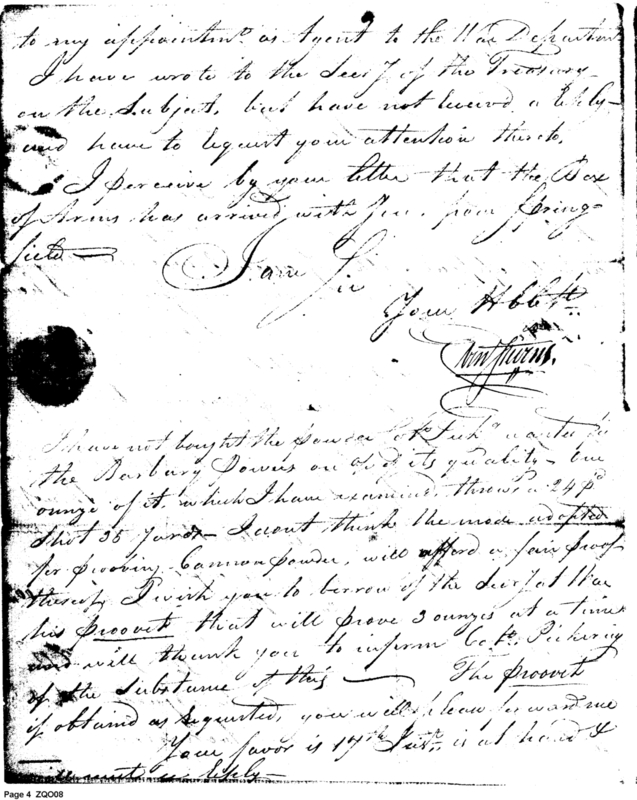 to my appointmt. as Agent to the War Department
I have wrote to the Secry of the Treasury
on the Subject, but have not recived a reply
and have to request your attention thereto.
I perceive by your letter that the Box
of Arms has arrived with You, from Spring-
field —
I am Sir
Your Hbl St
I have not bought the powder wanted for
the Barbary Powers on acct. of its quality - One
ounze of it, which I have examined, throws a 24 pd
Shot 35 Yards - I dont think the mode adopted
for prooving Cannon powder, will afford a fair proof
thereof, I wish you to borrow of the Secry at War
his proovet that will prove 3 ounzes at a time
and will thank you to inform Colo. Pickering
of the Substance of this — The proovet
if obtand as requested, you will please forward me
Your favor is 17th Inst. is at hand &
reply -
Page 4 ZQO08